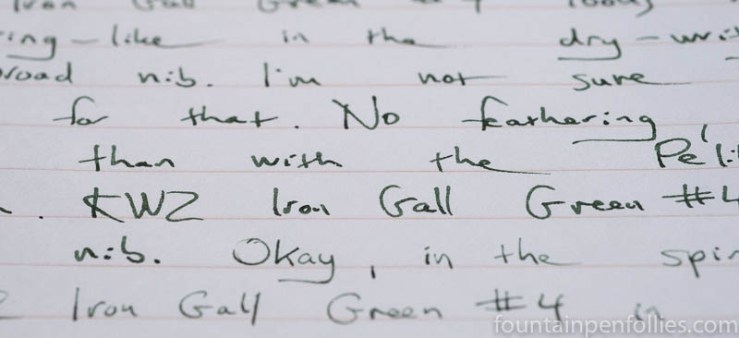 Iron Gall Green #4
ing-like in the dry-writ
road nib. I'm not sure
for that. No feathering,
than with the Peli
. KWZ Iron Gall Green #4
nib. Okay, in the spir
Iron Gall Green #4 in
fountainpenfollies.com